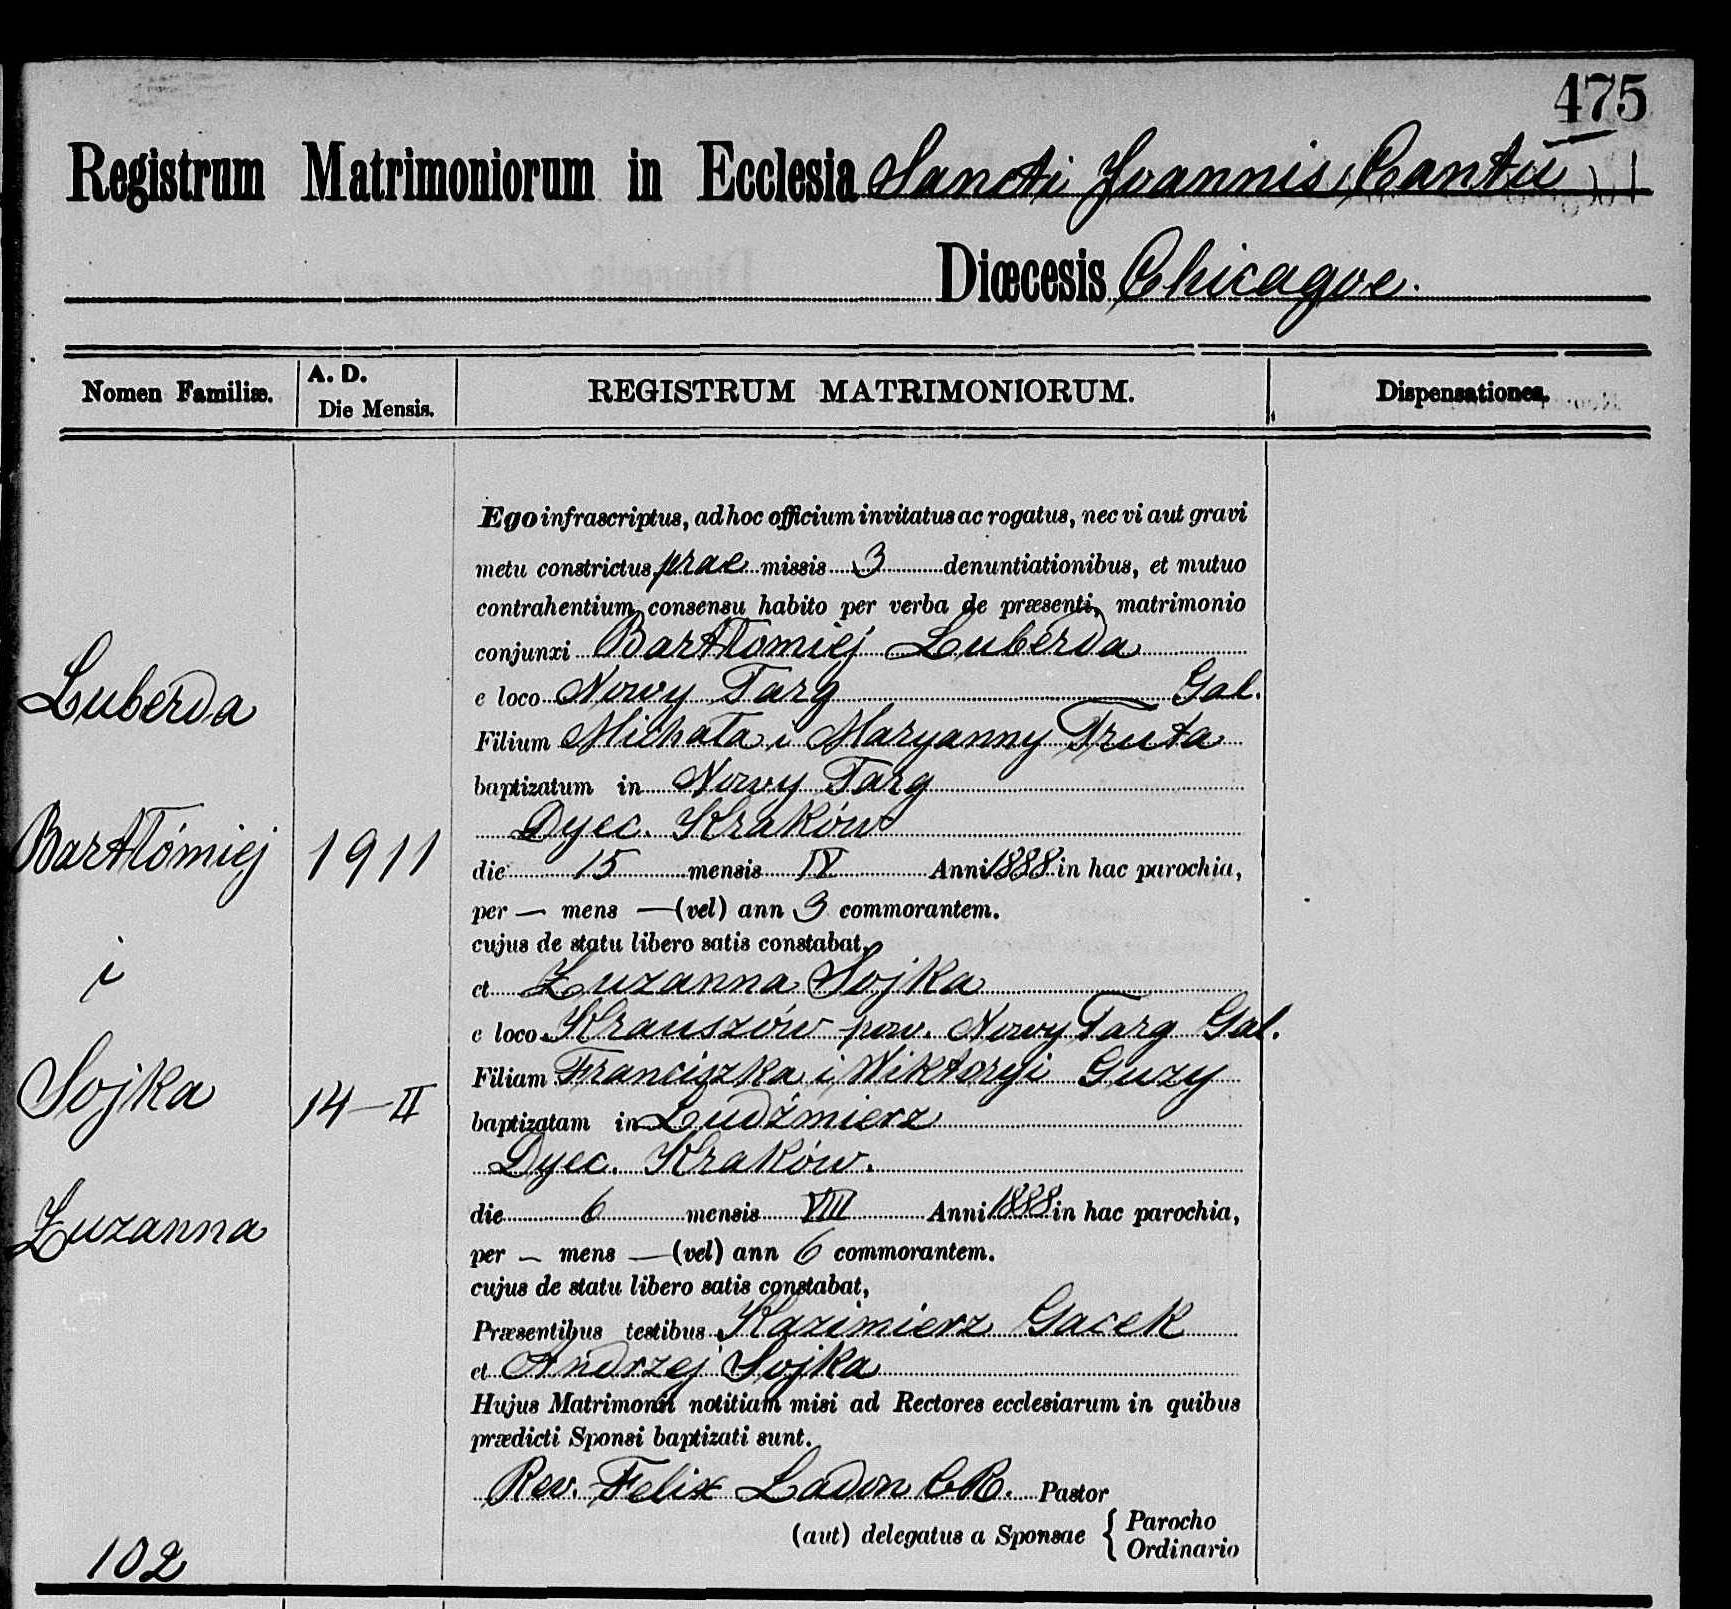 475
Registrum Matrimoniorum in Ecclesia Sancti Joannis Cantii
Diœcesis Chicagoe.
Nomen Familiæ.
A. D.
Die Mensis.
REGISTRUM MATRIMONIORUM.
Dispensationes.
Ego infrascriptus, ad hoc officium invitatus ac rogatus, nec vi aut gravi
metu constrictus prae missis 3 denuntiationibus, et mutuo
contrahentium consensu habito per verba de præsenti, matrimonio
conjunxi Bartłomiej Luberda
e loco Nowy Targ Gal.
Luberda
Filium Michała i Maryanny Truta
baptizatum in Nowy Targ
Dyec. Kraków
Bartłómiej
1911
die 15 mensis IV Anni 1888 in hac parochia,
per — mens — (vel) ann 3 commorantem.
cujus de statu libero satis constabat,
i
et Zuzanna Sojka
e loco Krauszów pow. Nowy Targ Gal.
Sojka
14-II
Filiam Franciszka i Wiktoryi Guzy
baptizatam in Ludźmierz
Dyec. Kraków.
Zuzanna
die 6 mensis VIII Anni 1888 in hac parochia,
per – mens — (vel) ann 6 commorantem.
cujus de statu libero satis constabat,
Præsentibus testibus Kazimierz Gacek
et Andrzej Sojka
Hujus Matrimonii notitiam misi ad Rectores ecclesiarum in quibus
prædicti Sponsi baptizati sunt.
Rev. Felix Ladon C.R. Pastor
(aut) delegatus a Sponsae { Parocho
Ordinario
102